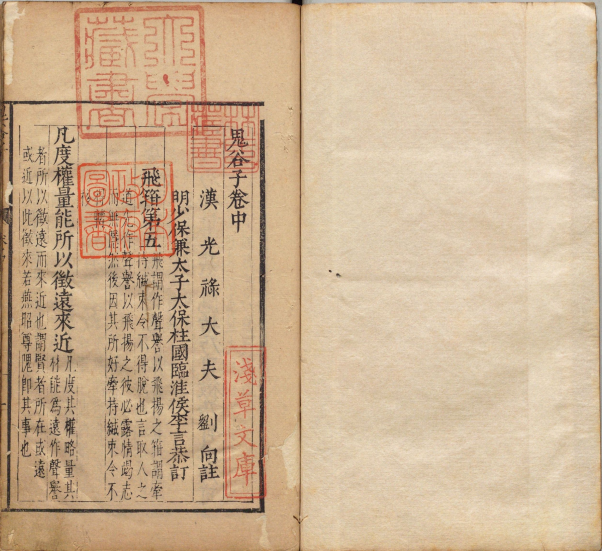 鬼谷子卷中
漢光祿大夫劉向註
明少保兼太子太保柱國臨淮侯李言恭訂
飛箝第五
飛謂作聲譽以飛揚之箝謂牽
持緘束令不得脫也言取人之
道先作聲譽以飛揚之彼必露情竭志
而無隱然後因其所好牽持緘束令不
凡度權量能所以徵遠來近
凡度其權略量其
材能為遠作聲譽
者所以徵遠而來近也謂賢者所在或遠
或近以此徵來若燕昭尊隗即其事也
淺草文庫
藏書
圖書